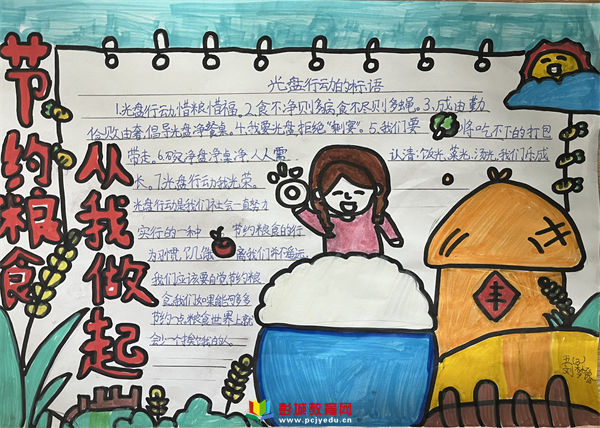 节约粮食
从我做起
光盘行动的标语
1.光盘行动,惜粮惜福。2.食不净则多病,食不尽则多蝇。3.成由勤
俭败由奢,倡导光盘净餐桌。4.我要光盘拒绝“剩宴”。5.我们要将吃不下的打包
带走。6.吹净盘净桌净,人人需认清:饭光,菜光,汤光,我们乐成
长。7.光盘行动我光荣。
光盘行动是我们社会一直努力
实行的一种节约粮食的行
为习惯,饥饿离我们并不遥远
我们应该要自觉节约粮
食,我们如果能够多
节约一点粮食世界上就
会少一个挨饿的人。
丰
彭城教育网
www.pcjyedu.cn